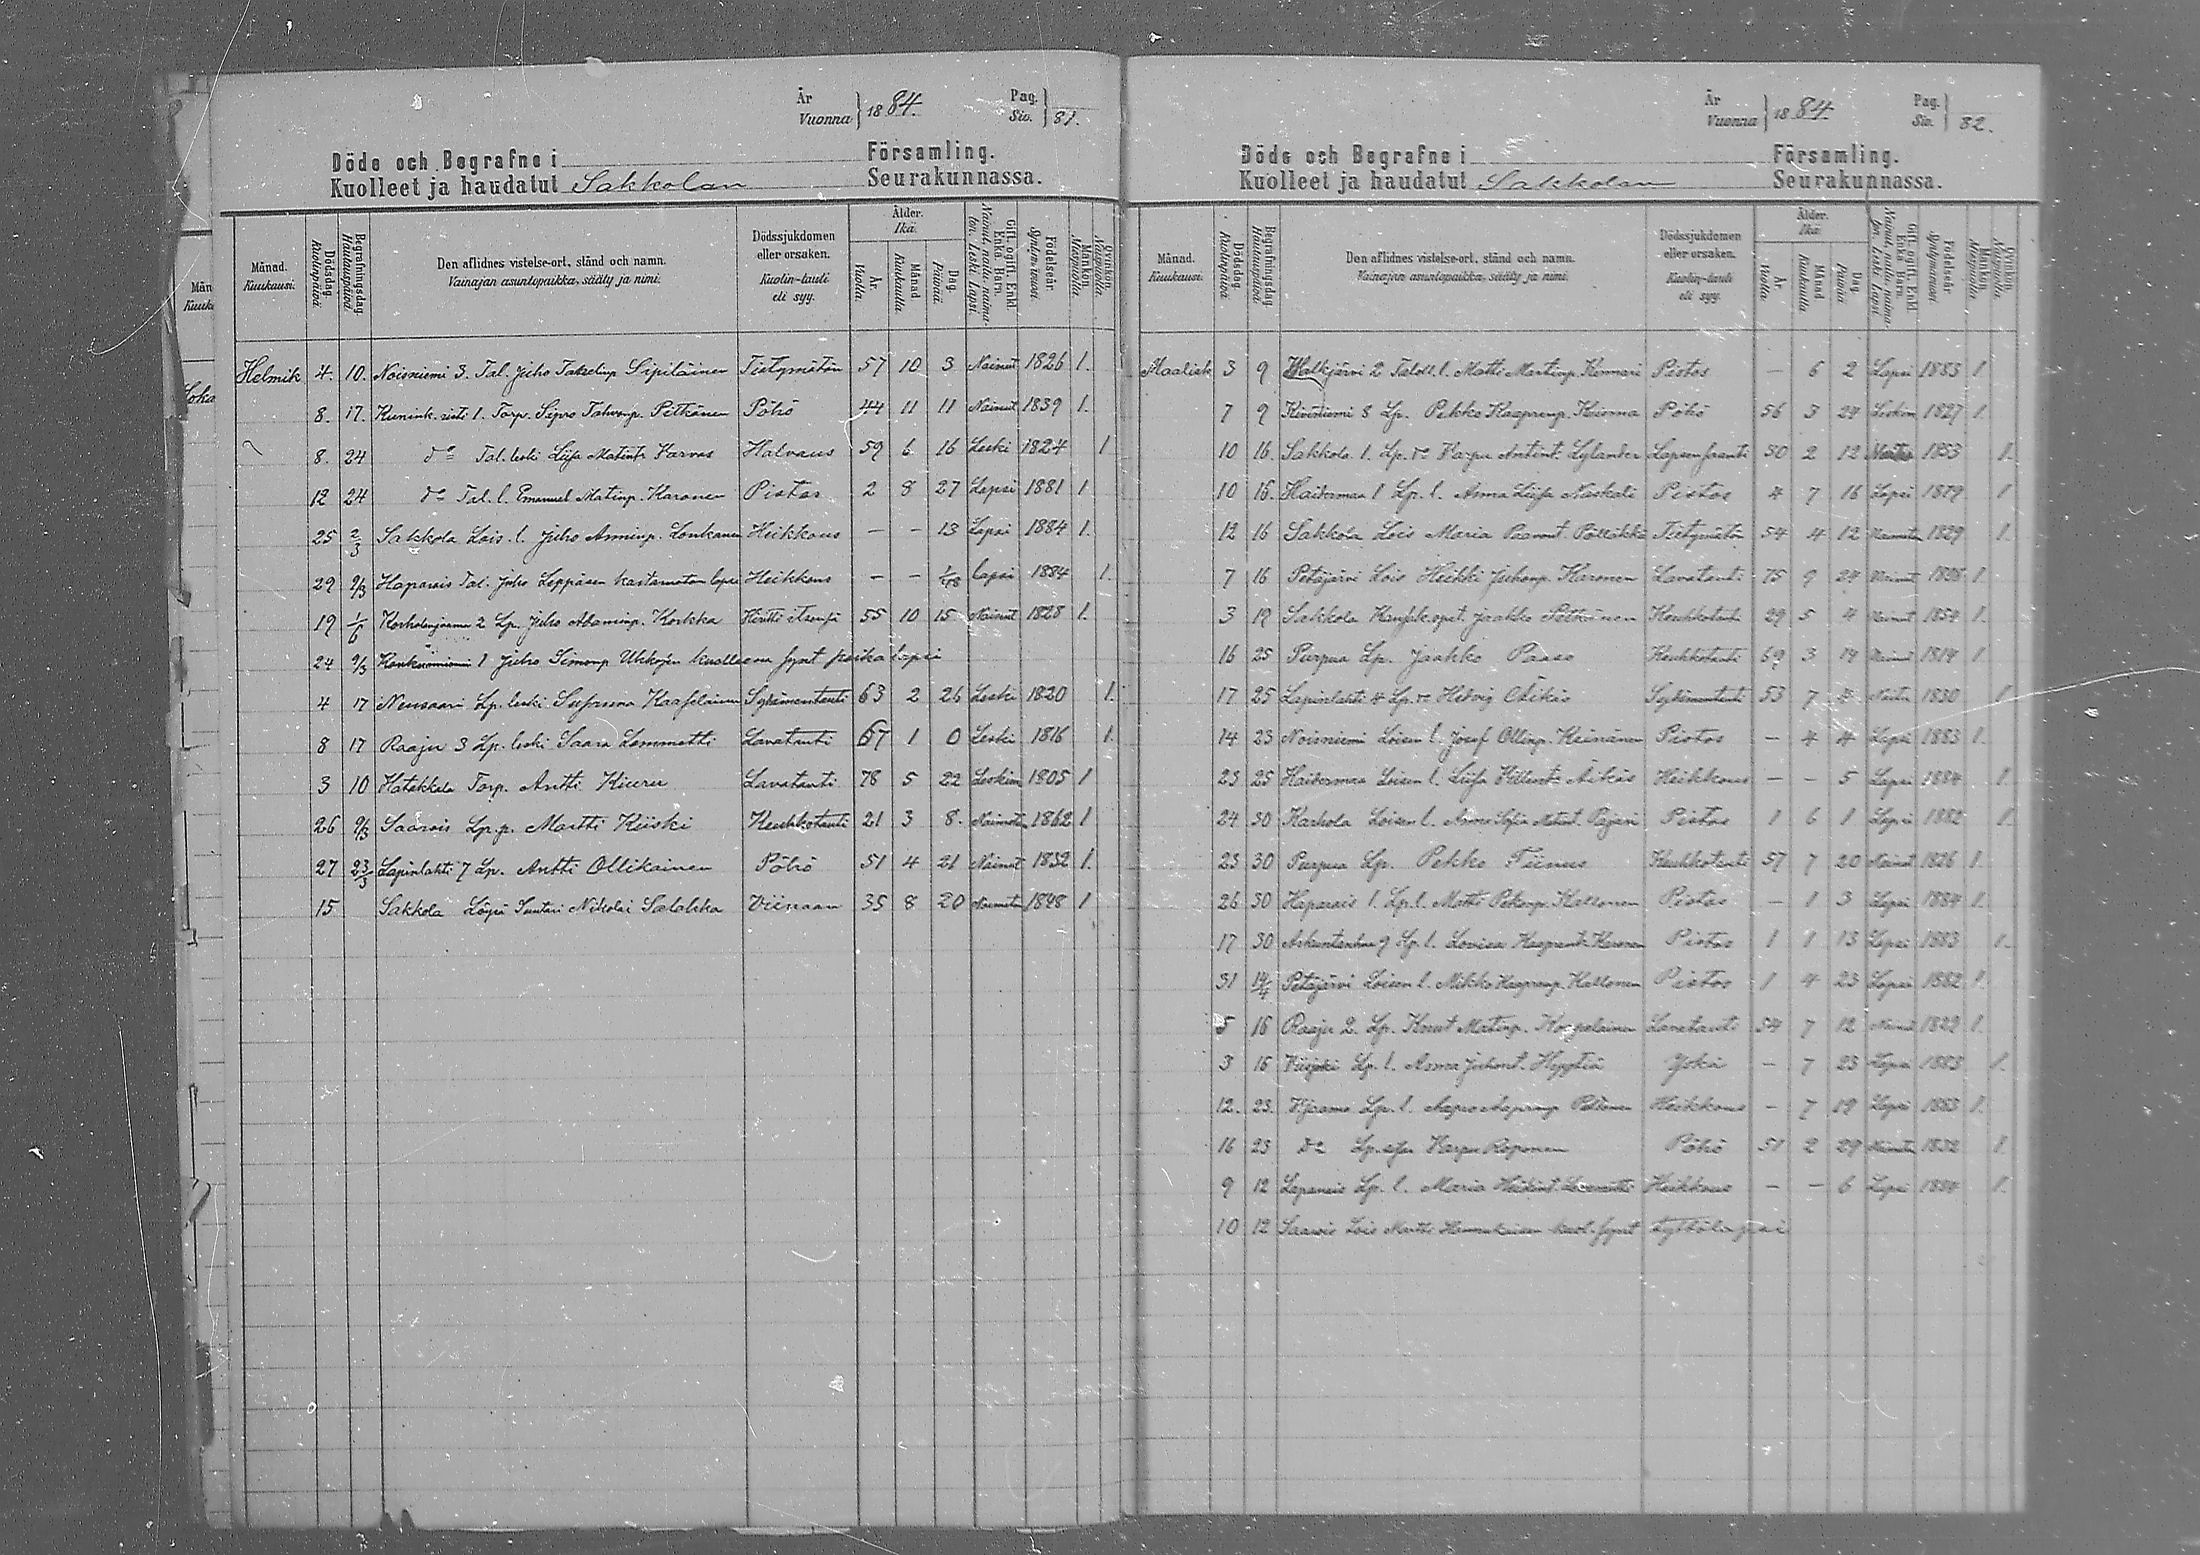 År
Vuonna } 1884. Pag.
Siv. } 81.
Döde och Begrafne i Församling.
Kuolleet ja haudatut Sakkolan Seurakunnassa.
Månad. Kuukausi. Dödsdag. Kuolinpäivä. Begrafningsdag. Hautauspäivä. Den aflidnes vistelse-ort, stånd och namn. Vainajan asuntopaikka, sääty ja nimi. Dödssjukdomen eller orsaken. Kuolin-tauti eli syy. Ålder. Ikä. År. Vuotta. Månad. Kuukautta. Dag. Päiviä. Gift, ogift, Enkl. Enka, Barn. Nainut, naimaton, Leski, Lapsi. Födelseår. Syntymävuosi. Mankön. Miespuolia. Qvinkön. Naispuolia.
Helmik 4. 10. Noisniemi 3. Tal. Juho Sipiläinen Tietymätön 57 10 3 Nainut 1826 1.
8. 17. 1. Torp. Sipro Pitkänen Pöhö 44 11 11 Nainut 1839 1.
8. 24 do Tal. leski Liisa Matint. Karvas Halvaus 59 6 16 Leski 1824 1
12 24 do Tal. l. Emanuel Matinp. Karonen Pistos 2 8 27 Lapsi 1881 1
25 2/3 Sakkola Lois. l. Juho Anninp. Loukanen Heikkous – – 13 Lapsi 1884 1.
29 9/3 Haparais Tal. Juho Leppäsen kastamaton lapsi Heikkous – – lapsi 1884 1.
19 1/6 2 Lp. Juho Adaminp. Korkka 55 10 15 Nainut 1828 1.
24 9/3 1 Juho Simonp. Ukkosen kuolleena synt poika lapsi
4 17 Neusaari Lp. leski Susanna Kaasalainen Sydämentauti 63 2 26 Leski 1820 1.
8 17 Raaju 3 Lp. leski Saara Lemmetti Lavatauti 67 1 0 Leski 1816 1.
3 10 Hatakkala Torp. Antti Kiuru Lavatauti 78 5 22 Leskim 1805 1
26 9/3 Saarois Lp.p. Martti Kiiski Keuhkotauti 21 3 8. Naimaton 1862 1
27 23/3 Lapinlahti 7 Lp. Antti Ollikainen Pöhö 51 4 21 Nainut 1832 1.
15 Sakkola Suutari Nikolai Salakka Viinaan 35 8 20 Naimaton 1848 1
År
Vuonna } 1884. Pag.
Siv. } 82.
Döde och Begrafne i Församling.
Kuolleet ja haudatut Sakkolan Seurakunnassa.
Månad. Kuukausi. Dödsdag. Kuolinpäivä. Begrafningsdag. Hautauspäivä. Den aflidnes vistelse-ort, stånd och namn. Vainajan asuntopaikka, sääty ja nimi. Dödssjukdomen eller orsaken. Kuolin-tauti eli syy. Ålder. Ikä. År. Vuotta. Månad. Kuukautta. Dag. Päiviä. Gift, ogift, Enkl. Enka, Barn. Nainut, naimaton, Leski, Lapsi. Födelseår. Syntymävuosi. Mankön. Miespuolia. Qvinkön. Naispuolia.
Maalisk 3 9 Walkjärvi 2 l. Matti Martinp. Pistos – 6 2 Lapsi 1883 1
7 9 Kiviniemi 8 Lp. Pekko Kasprenp. Pöhö 56 3 24 Leskim 1827 1.
10 16. Sakkola 1. Lp. Karpu Antint. Sylander 30 2 12 1853 1.
10 16. Haitermaa 1 Lp. l. Anna Liisa Naskali Pistos 4 7 16 Lapsi 1879 1
12 16 Sakkola Lois Maria Paavont. Pöllökkä Tietymätön 54 4 12 Naimaton 1829 1.
7 16 Petäjärvi Lois Heikki Juhonp. Karonen Lavatauti 75 9 24 Nainut 1.
3 19 Sakkola Jaakko Keuhkotauti 29 5 4 Nainut 1854 1.
16 25 Purpua Lp. Jaakko Paaso Keuhkotauti 69 3 14 Nainut 1814 1.
17 25 Lapinlahti 4 Lp. Helvig Äikäs Sydämentauti 53 7 4 1830 1.
14 23 Noisniemi Loisen l. Josef Ollinp. Heinänen Pistos – 4 4 Lapsi 1883 1.
23 25 Haitermaa Loisen l. Liisa Äikäs Heikkous – – 5 Lapsi 1884 1.
24 30 Karhola Loisen l. Anna Sofia Matint. Pajari Pistos 1 6 1 Lapsi 1882 1.
23 30 Purpua Lp. Pekko Tiinus Keuhkotauti 57 7 20 Nainut 1826 1.
26 30 Haparais 1. Lp. l. Matti Pekanp. Kallonen Pistos – 1 3 Lapsi 1884 1.
17 30 9 Lp. l. Lovisa Kasprent. Karonen Pistos 1 1 13 Lapsi 1883 1.
31 14/4 Petäjärvi Loisen l. Mikko Kasprenp. Kallonen Pistos 1 4 23 Lapsi 1882 1.
5 16 Raaju 2. Lp. Knut Matinp. Lavatauti 54 7 12 Nainut 1829 1.
3 16 Viisjoki Lp. l. Anna Juhont. Hyytiä Yskä – 7 23 Lapsi 1883 1.
12. 23. Lp. l. Aapro Aapronp. Heikkous – 7 19 Lapsi 1883 1.
16 23 do Karpu Roponen Pöhö 51 2 29 1832 1.
9 12 Lapanais Lp. l. Maria Heikint. Heikkous – – 6 Lapsi 1884 1.
10 12 Saarois Lois Matti kuol. synt tyttölapsi